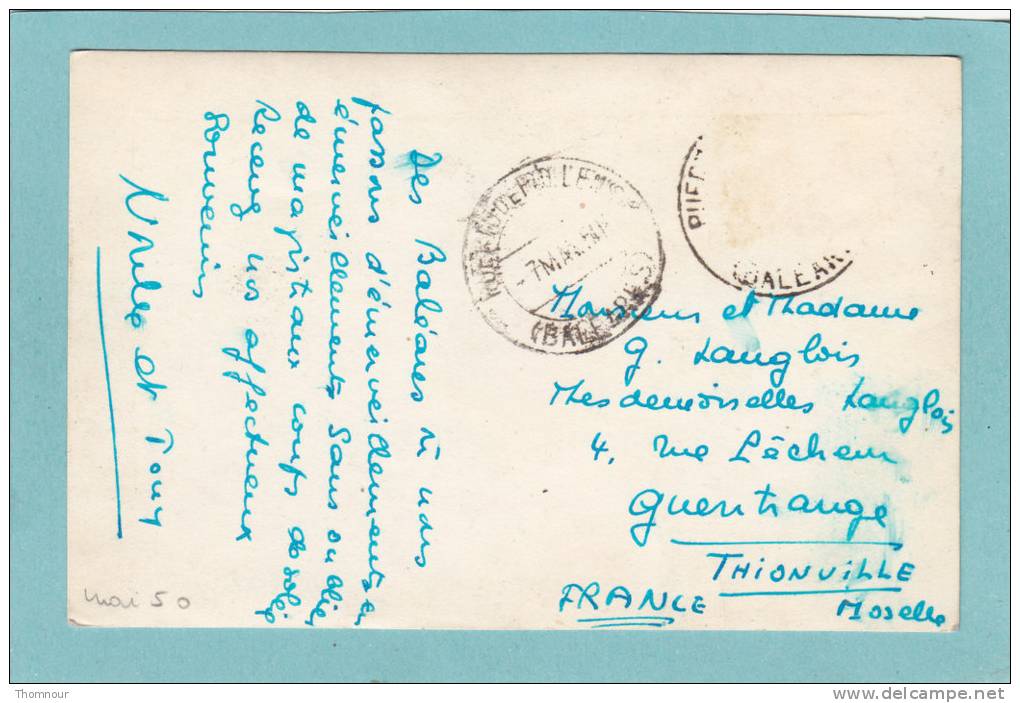 Des Baléares où nous
passons d'émerveillements en
émerveillements sans oublier
de magistraux coups de soleil
Recevez nos affectueux
souvenirs
et Tony
PUERTO DE POLLENSA
-7 MAI. 50
(BALEARES)
PUER
(BALEAR
Monsieur et Madame
G. Langlois
Mesdemoiselles Langlois
4, rue Pêcheur
Guentrange
THIONVILLE
FRANCE
Moselle
mai 50
Thomnour
http://www.delcampe.net